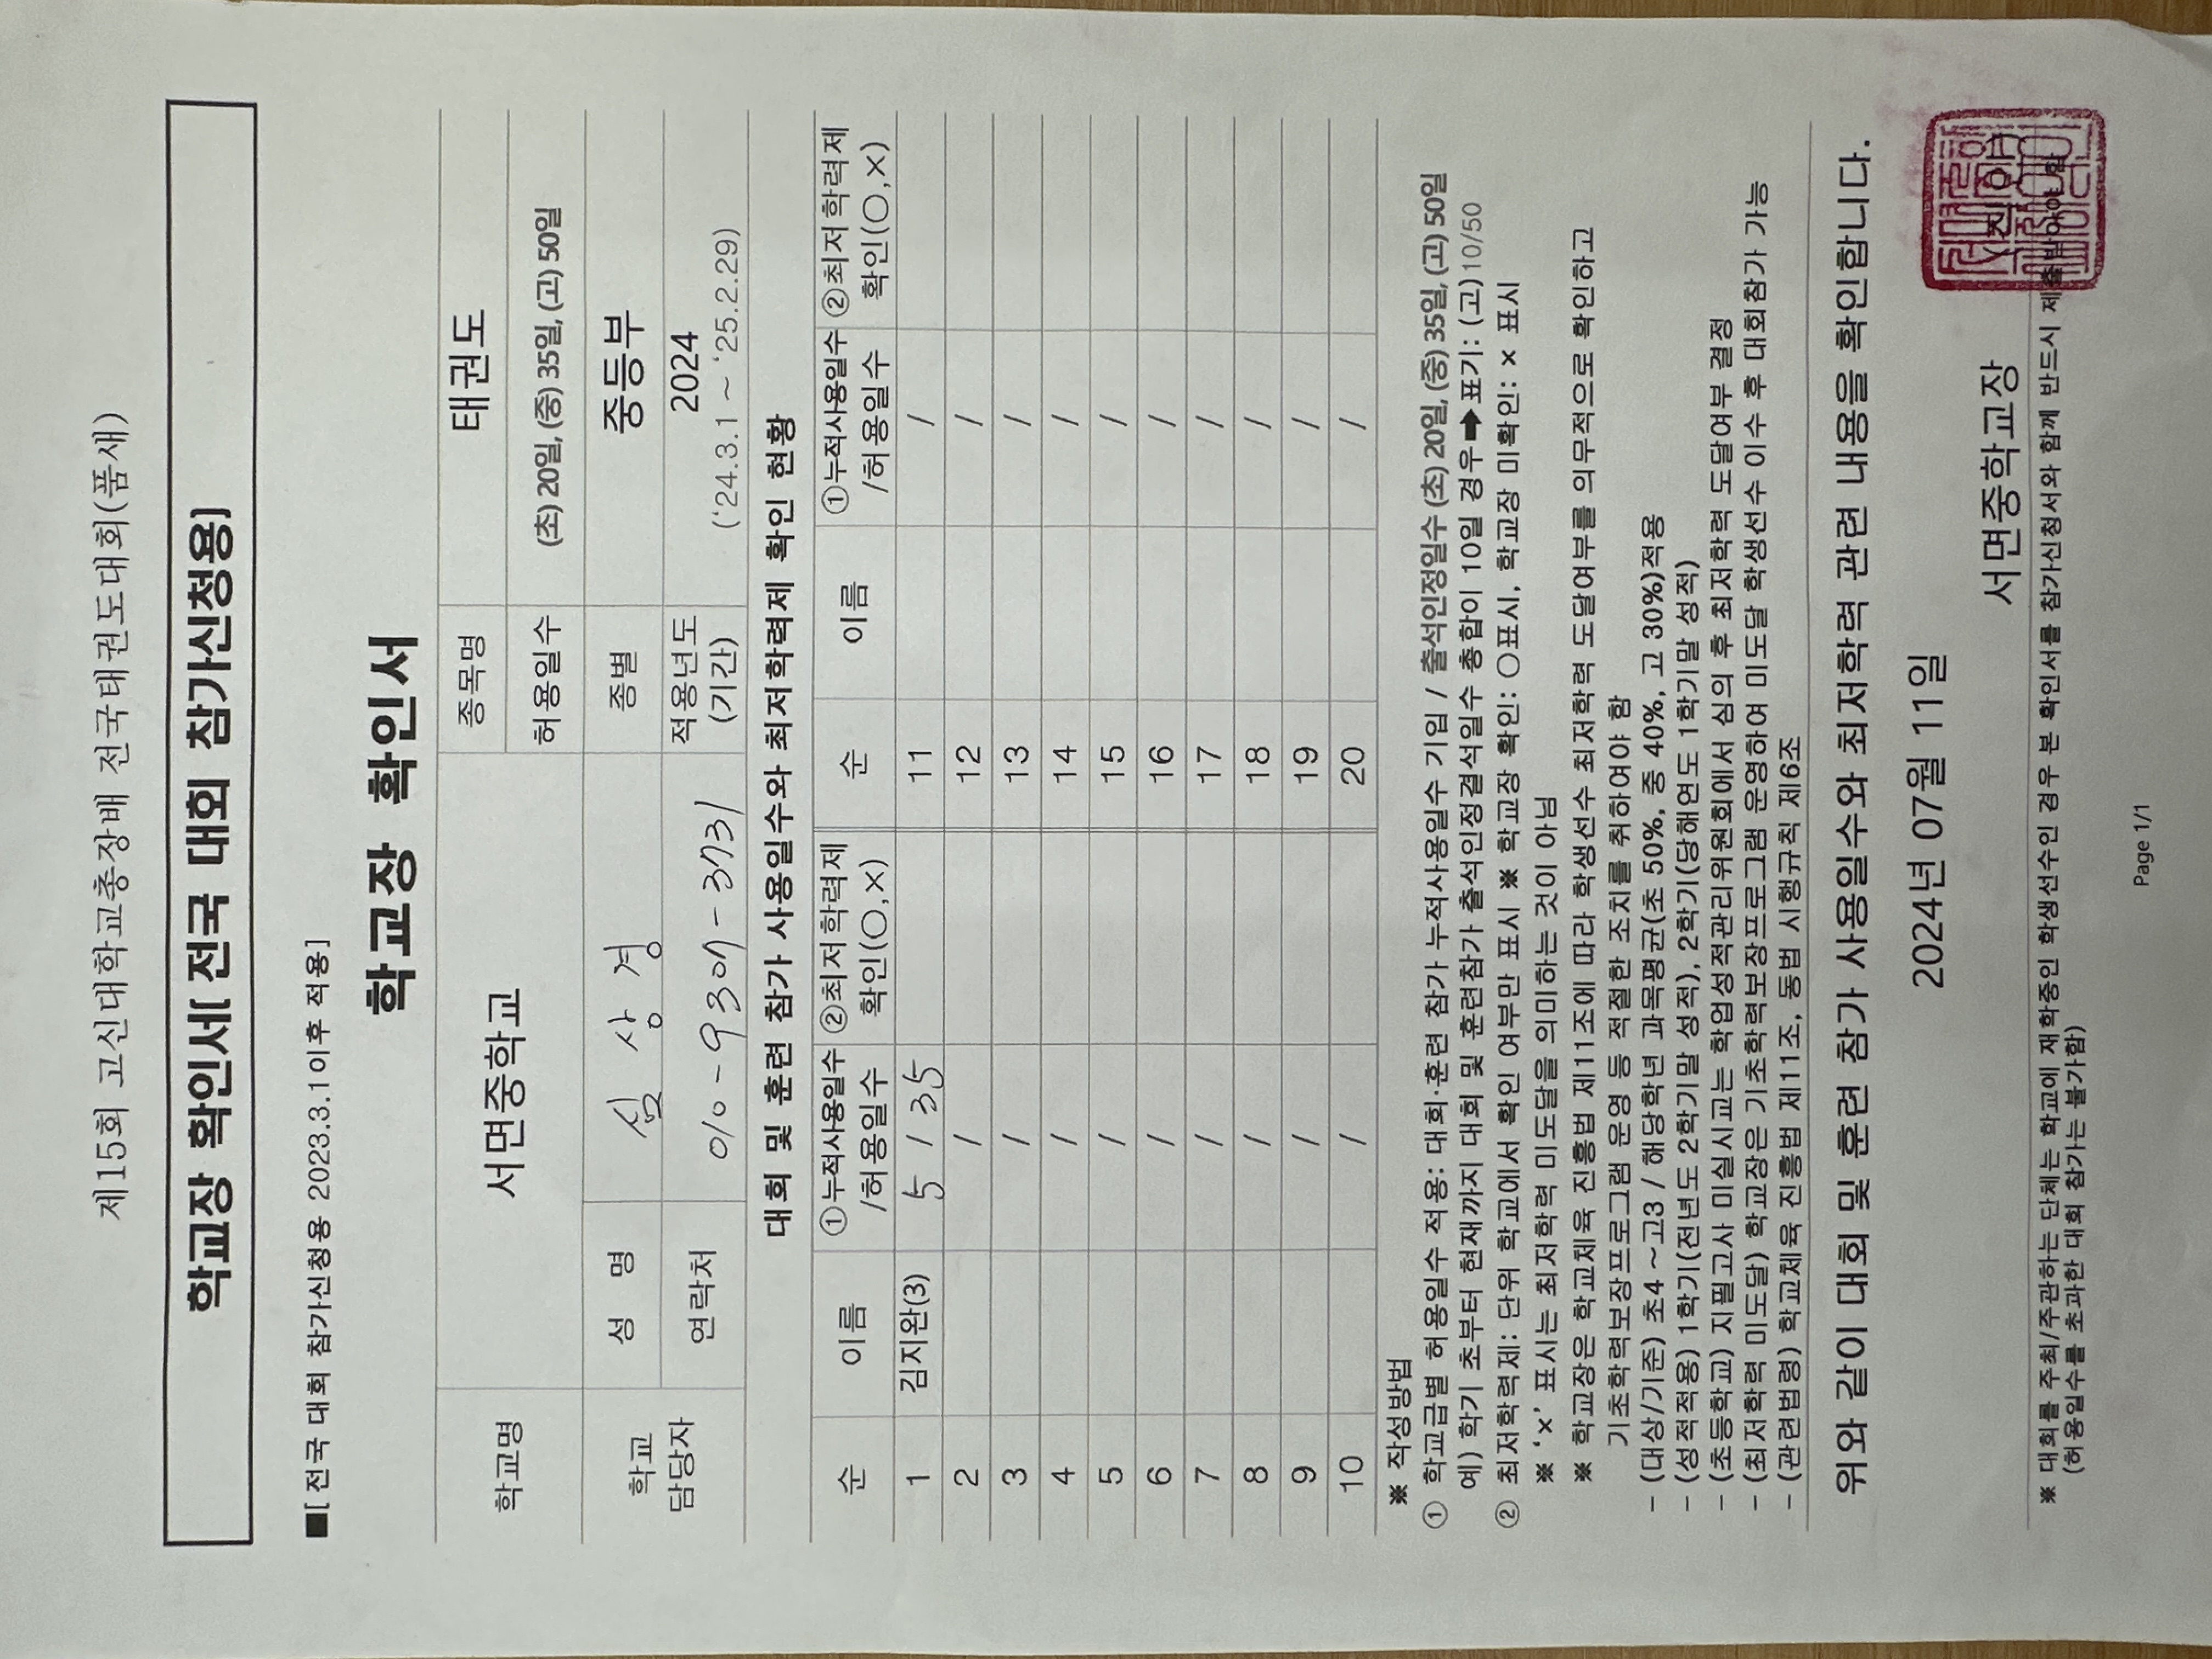 제15회 고신대학교총장배 전국태권도대회(품새)
학교장 확인서[전국 대회 참가신청용]
■[전국 대회 참가신청용 2023.3.1이후 적용]
학교장 확인서
학교명 서면중학교 종목명 태권도
허용일수 (초) 20일, (중) 35일, (고) 50일
학교 담당자 성 명 심상경 종별 중등부
연락처 010-9307-3731 적용년도 (기간) 2024 (‘24.3.1 ~ ‘25.2.29)
대회 및 훈련 참가 사용일수와 최저학력제 확인 현황
순 이름 ①누적사용일수 /허용일수 ②최저학력제 확인(○,×) 순 이름 ①누적사용일수 /허용일수 ②최저학력제 확인(○,×)
1 김지완(3) 5 / 35 11 /
2 / 12 /
3 / 13 /
4 / 14 /
5 / 15 /
6 / 16 /
7 / 17 /
8 / 18 /
9 / 19 /
10 / 20 /
※ 작성방법
① 학교급별 허용일수 적용: 대회·훈련 참가 누적사용일수 기입 / 출석인정일수 (초) 20일, (중) 35일, (고) 50일
예) 학기 초부터 현재까지 대회 및 훈련참가 출석인정결석일수 총합이 10일 경우➡표기: (고)10/50
② 최저학력제: 단위 학교에서 확인 여부만 표시 ※ 학교장 확인: ○표시, 학교장 미확인: × 표시
※ ‘×’ 표시는 최저학력 미도달을 의미하는 것이 아님
※ 학교장은 학교체육 진흥법 제11조에 따라 학생선수 최저학력 도달여부를 의무적으로 확인하고
기초학력보장프로그램 운영 등 적절한 조치를 취하여야 함
- (대상/기준) 초4 ~고3 / 해당학년 과목평균(초 50%, 중 40%, 고 30%)적용
- (성적적용) 1학기(전년도 2학기말 성적), 2학기(당해연도 1학기말 성적)
- (초등학교) 지필고사 미실시교는 학업성적관리위원회에서 심의 후 최저학력 도달여부 결정
- (최저학력 미도달) 학교장은 기초학력보장프로그램 운영하여 미도달 학생선수 이수 후 대회참가 가능
- (관련법령) 학교체육 진흥법 제11조, 동법 시행규칙 제6조
위와 같이 대회 및 훈련 참가 사용일수와 최저학력 관련 내용을 확인합니다.
2024년 07월 11일
서면중학교장 (직인)
※ 대회를 주최/주관하는 단체는 학교에 재학중인 학생선수인 경우 본 확인서를 참가신청서와 함께 반드시 제출받아야 함
(허용일수를 초과한 대회 참가는 불가함)
Page 1/1